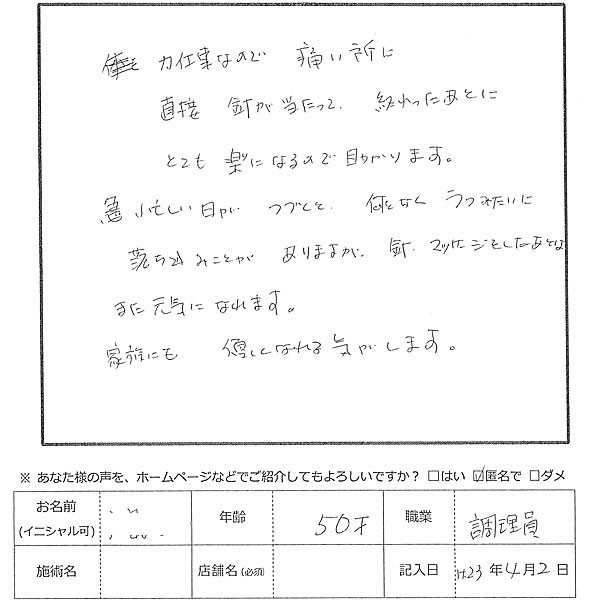 力仕事なので 痛い所に
直接 針が当たって、終わったあとに
とても 楽になるので助かります。
忙しい日が つづくと、何となく うつみたいに
落ち込みことが ありますが、針、マッサージをしたあとは
また元気になれます。
家族にも 優しくなれる気がします。
※ あなた様の声を、ホームページなどでご紹介してもよろしいですか？ □はい ☑匿名で □ダメ
お名前 (イニシャル可) 年齢 50才 職業 調理員
施術名 店舗名(必須) 記入日 H23年4月2日